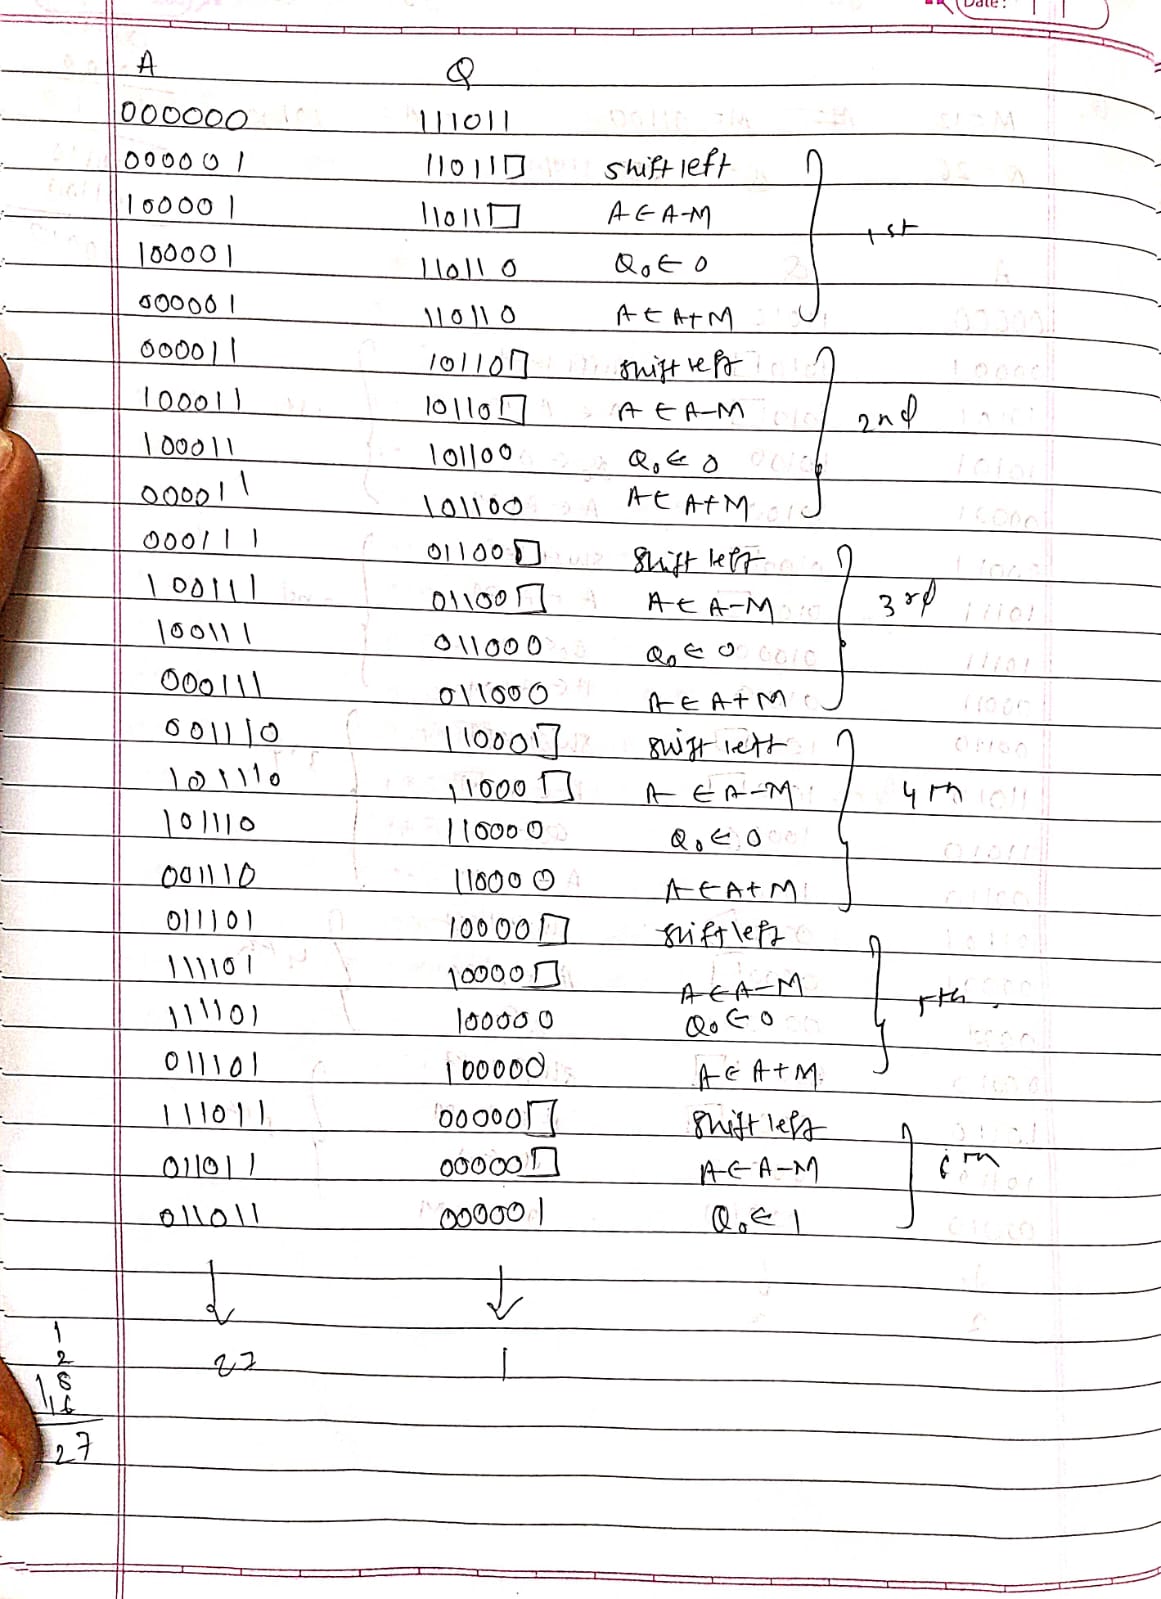 Date:
A Q
000000 111011
000001 11011□ shift left
100001 11011□ A←A-M
100001 110110 Q₀←0 1st
000001 110110 A←A+M
000011 10110□ shift left
100011 10110□ A←A-M 2nd
100011 101100 Q₀←0
000011 101100 A←A+M
000111 01100□ shift left
100111 01100□ A←A-M 3rd
100111 011000 Q₀←0
000111 011000 A←A+M
001110 11000□ shift left
101110 11000□ A←A-M 4th
101110 110000 Q₀←0
001110 110000 A←A+M
011101 10000□ shift left
111101 10000□ A←A-M 5th
111101 100000 Q₀←0
011101 100000 A←A+M
111011 00000□ shift left
011011 00000□ A←A-M 6th
011011 000001 Q₀←1
↓ ↓
1
2 27 1
8
16
27